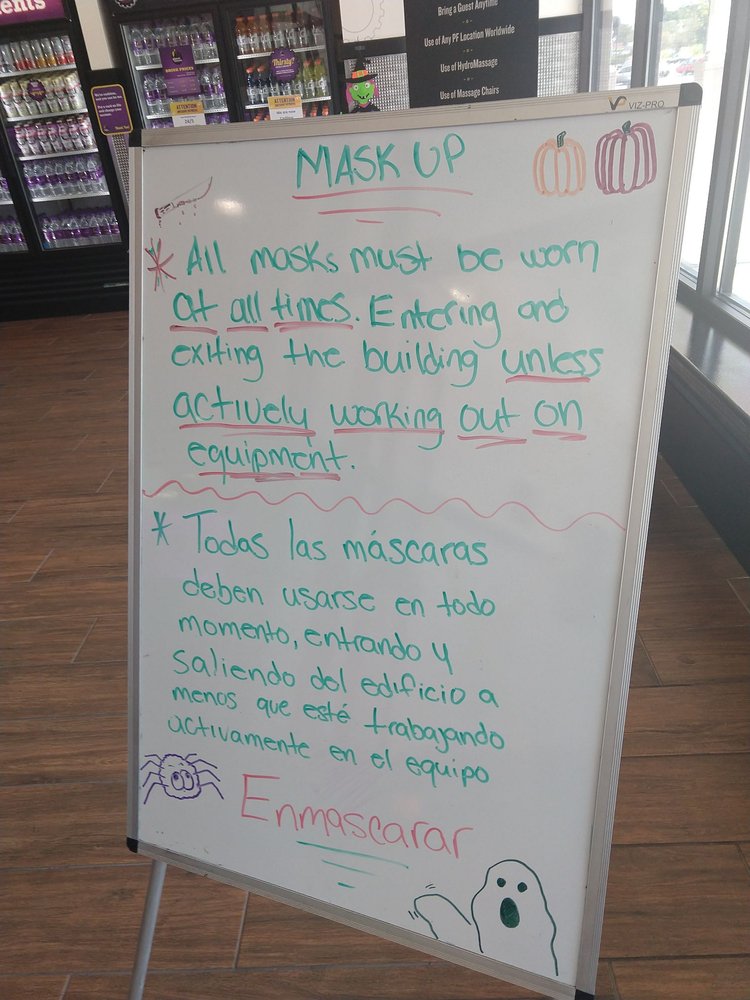 Bring a Guest Anytime
Use of Any PF Location Worldwide
Use of HydroMassage
Use of Massage Chairs
Thirsty?
DRINK PRICES
ATTENTION
ATTENTION
VIZ-PRO
MASK UP
* All masks must be worn
at all times. Entering and
exiting the building unless
actively working out on
equipment.
* Todas las máscaras
deben usarse en todo
momento, entrando y
saliendo del edificio a
menos que esté trabajando
activamente en el equipo
Enmascarar